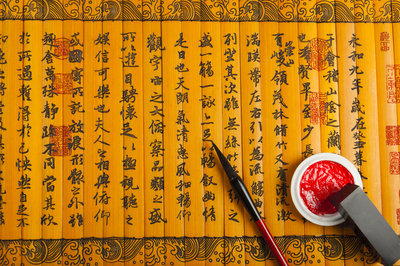 永和九年歲在癸丑
于會稽山陰之蘭
也羣賢畢至少
有崇山峻領茂林脩竹又有清流激
湍暎帶左右引以為流觴曲
列坐其次雖無絲竹管弦之
盛一觴一詠暢敘幽情
是日也天朗氣清惠風和暢仰
觀宇宙之大俯察品類之盛
所以遊目騁懷足以極視聽之
娛信可樂也夫人之相與俯仰
因寄所託放浪形骸之外雖
趣舍萬殊靜躁不同當其欣
於所遇暫得於己怏然自足不